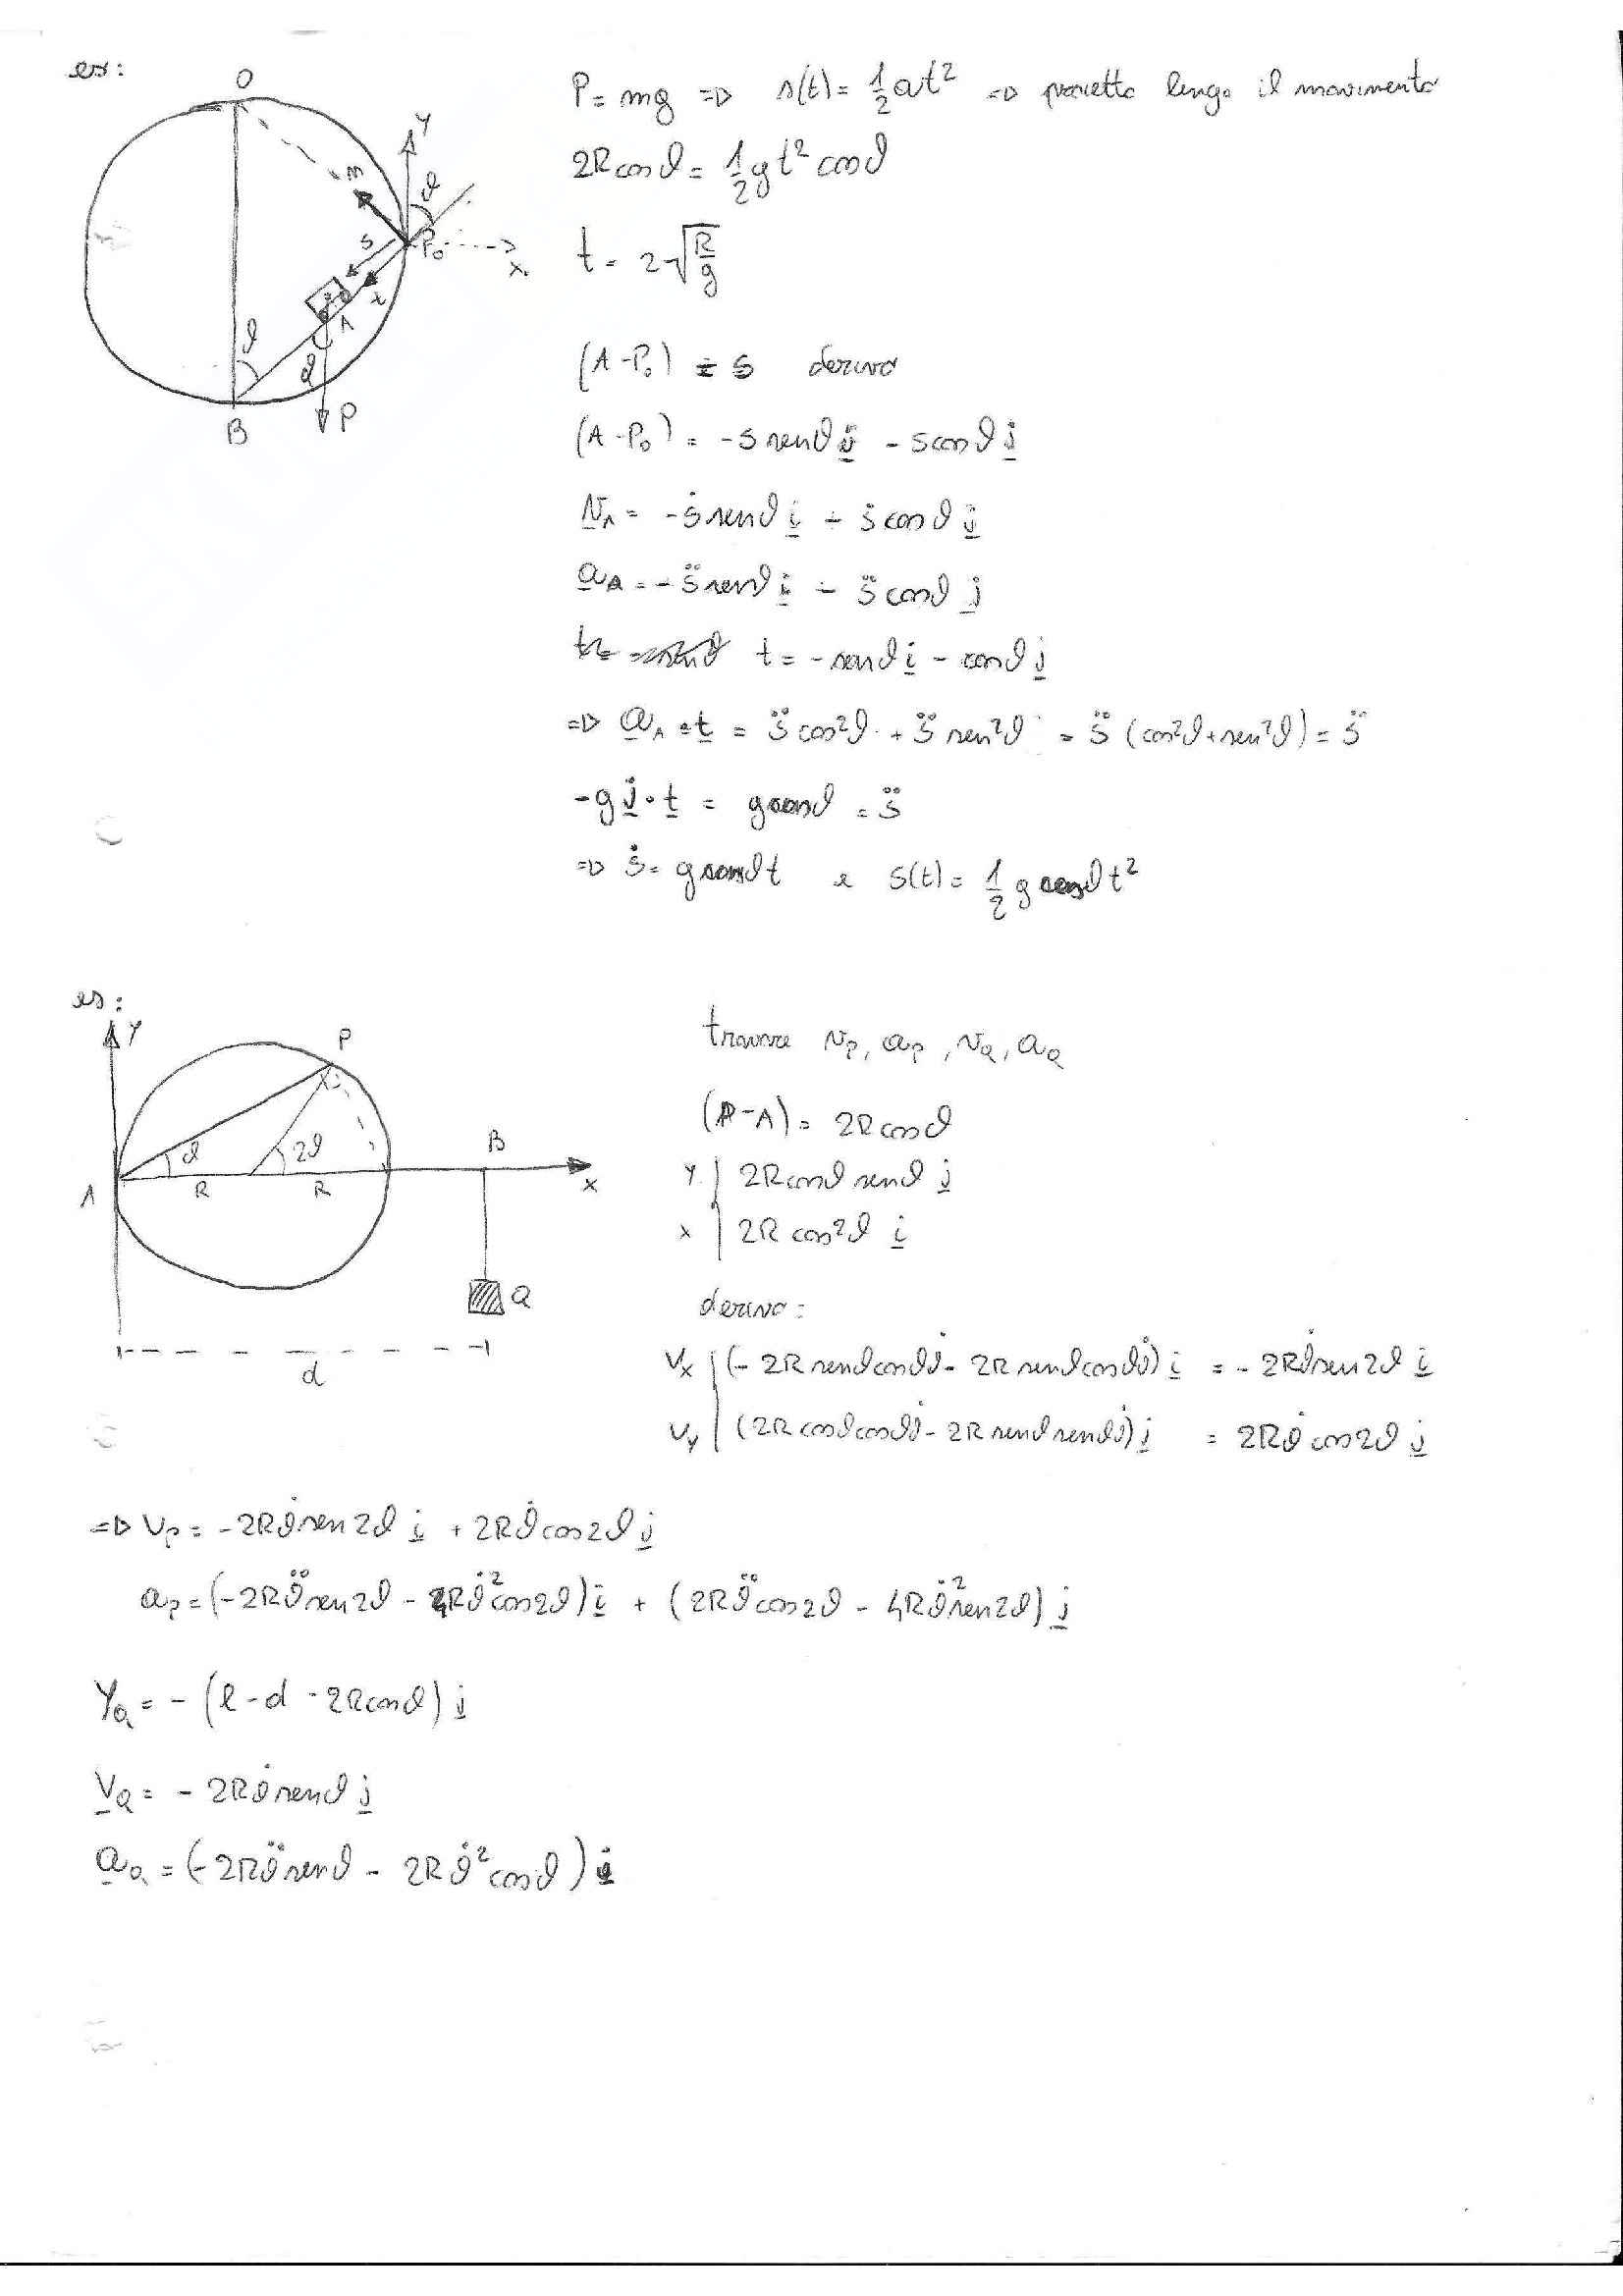 es:
O
y
n
ϑ
P₀
x
s
t
A
ϑ
ϑ
B
P
P = mg => s(t) = 1/2 at² => proietto lungo il movimento
2R cosϑ = 1/2 g t² cosϑ
t = 2√(R/g)
(A-P₀) = s derivo
(A-P₀) = -s senϑ i - s cosϑ j
v_A = -ṡ senϑ i - ṡ cosϑ j
a_A = -s̈ senϑ i - s̈ cosϑ j
t = -senϑ i - cosϑ j
=> a_A · t = s̈ cos²ϑ + s̈ sen²ϑ = s̈ (cos²ϑ + sen²ϑ) = s̈
-g j · t = g cosϑ = s̈
=> ṡ = g cosϑ t e s(t) = 1/2 g cosϑ t²
es:
y
P
ϑ
2ϑ
B
A
R
R
x
Q
d
trovare v_P, a_P, v_Q, a_Q
(P-A) = 2R cosϑ
y | 2R cosϑ senϑ j
x | 2R cos²ϑ i
derivo:
v_x | (-2R senϑ cosϑ ϑ̇ - 2R senϑ cosϑ ϑ̇) i = -2Rϑ̇ sen2ϑ i
v_y | (2R cosϑ cosϑ ϑ̇ - 2R senϑ senϑ ϑ̇) j = 2Rϑ̇ cos2ϑ j
=> v_P = -2Rϑ̇ sen2ϑ i + 2Rϑ̇ cos2ϑ j
a_P = (-2Rϑ̈ sen2ϑ - 4Rϑ̇² cos2ϑ) i + (2Rϑ̈ cos2ϑ - 4Rϑ̇² sen2ϑ) j
y_Q = -(l - d - 2R cosϑ) j
v_Q = -2Rϑ̇ senϑ j
a_Q = (-2Rϑ̈ senϑ - 2Rϑ̇² cosϑ) j